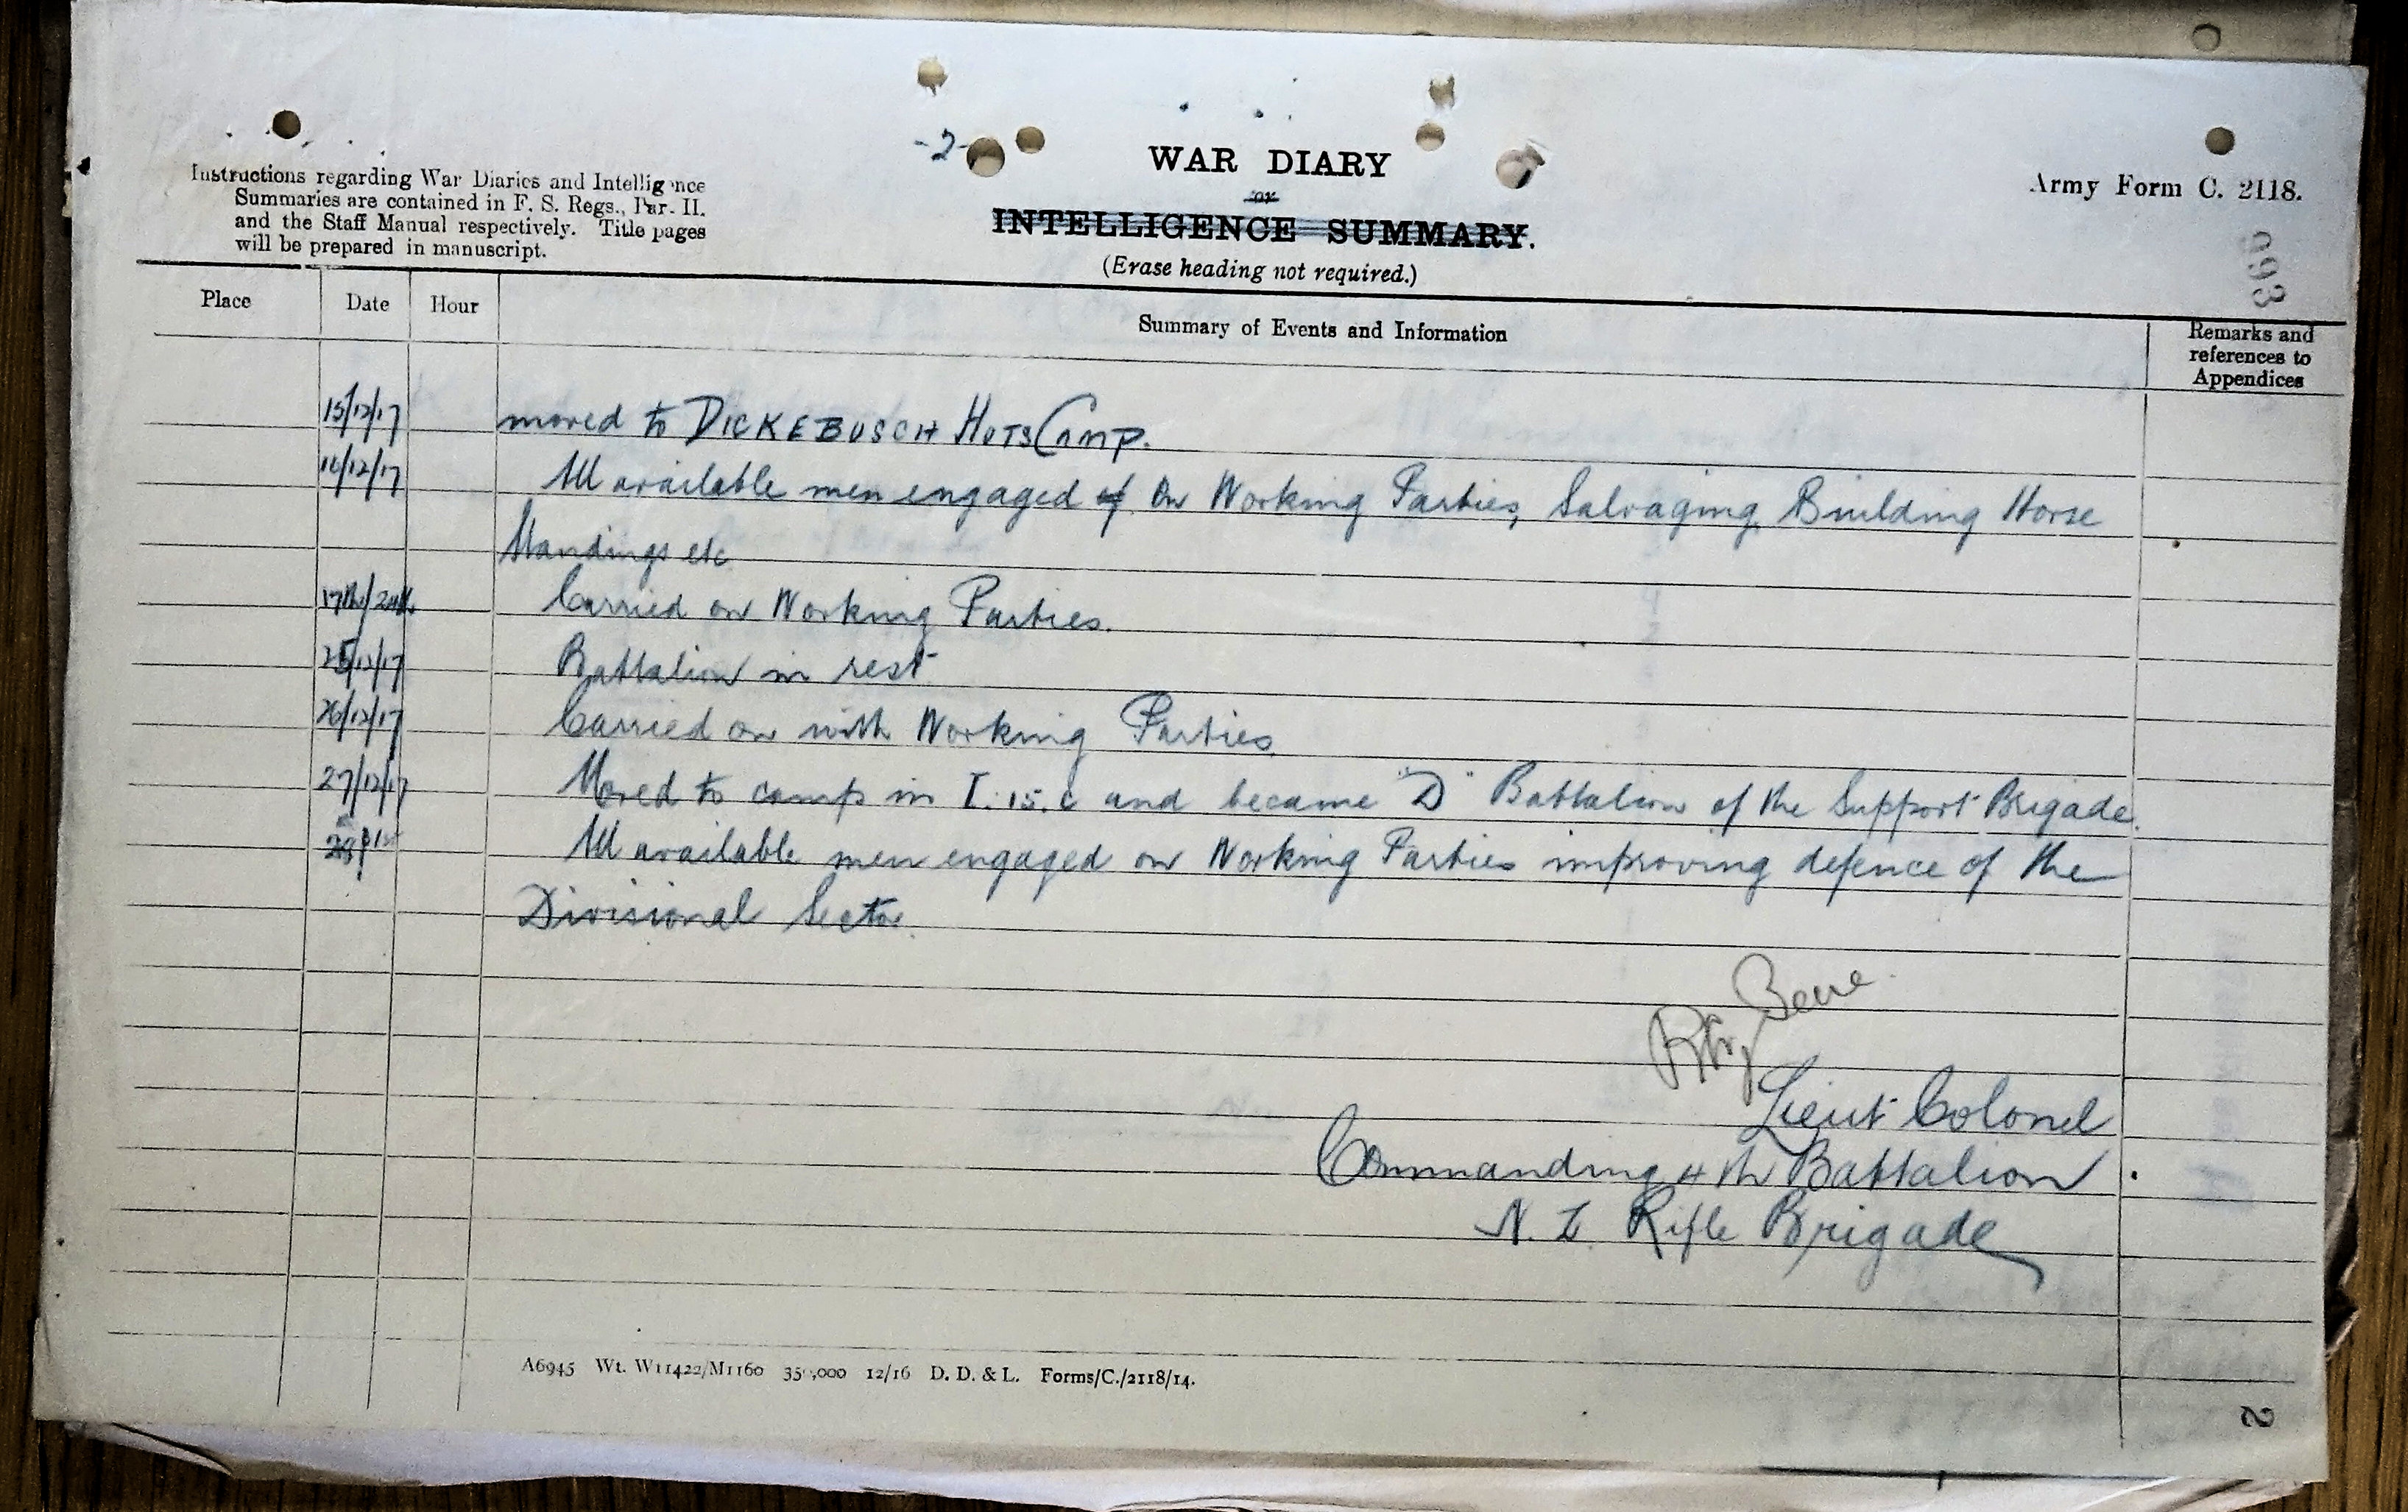 -2-
WAR DIARY
or
INTELLIGENCE SUMMARY.
(Erase heading not required.)
Instructions regarding War Diaries and Intelligence
Summaries are contained in F. S. Regs., Par. II.
and the Staff Manual respectively. Title pages
will be prepared in manuscript.
Army Form C. 2118.
993
Place Date Hour Summary of Events and Information Remarks and
references to
Appendices
15/12/17 moved to DICKEBUSCH HUTS CAMP.
16/12/17 All available men engaged of on Working Parties, Salvaging, Building Horse
Standings etc
17th/24th Carried on Working Parties.
25/12/17 Battalion in rest
26/12/17 Carried on with Working Parties
27/12/17 Moved to camp in I.15.c and became "D" Battalion of the Support Brigade.
All available men engaged on Working Parties improving defence of the
Divisional Sector.
Lieut Colonel
Commanding 4th Battalion
N. Z. Rifle Brigade
A6945 Wt. W11422/M1160 350,000 12/16 D. D. & L. Forms/C./2118/14.
2